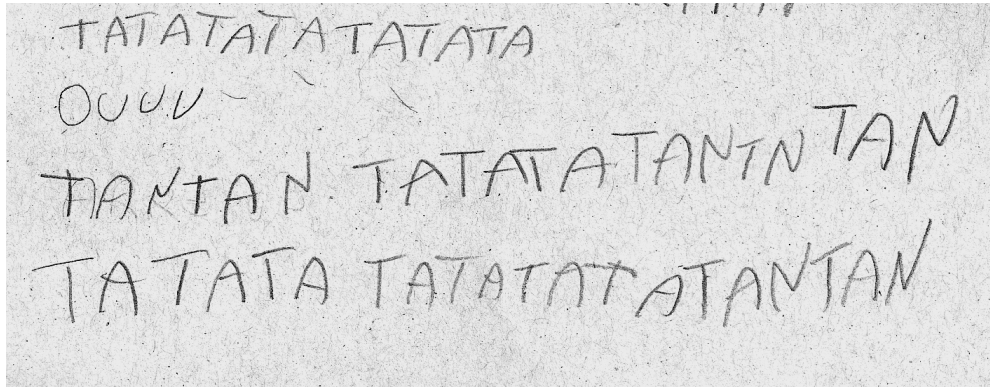 TATATATATATATA
OUUU
TANTAN TATATATANTN TAN
TATATA TATATATATANTAN